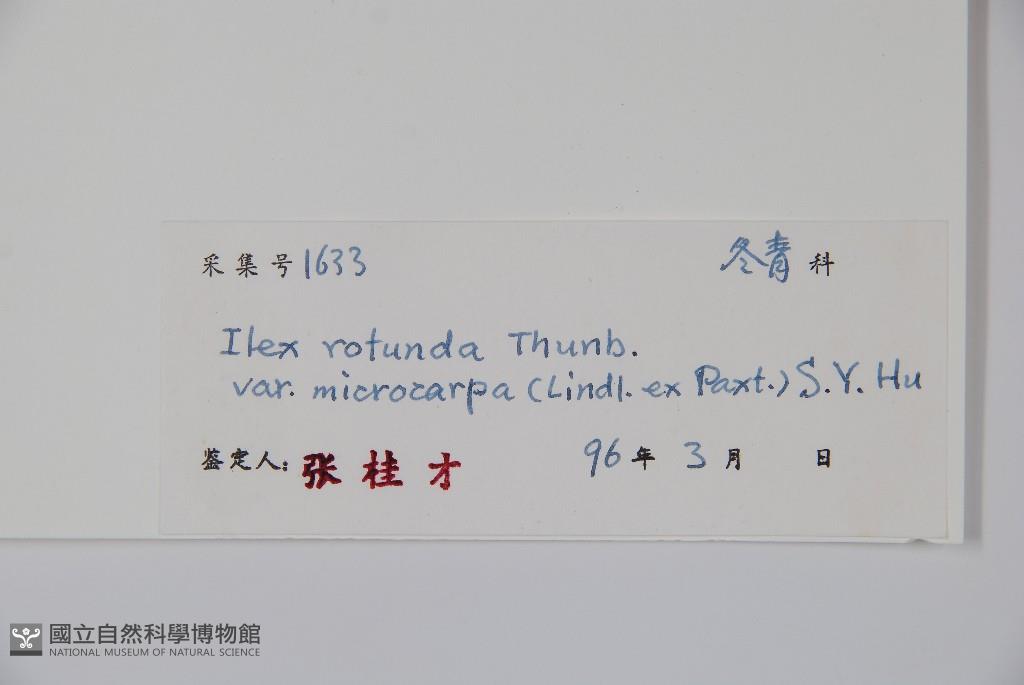 采集号 1633 冬青 科
Ilex rotunda Thunb.
var. microcarpa (Lindl. ex Paxt.) S.Y. Hu
鉴定人: 张桂才 96 年 3 月 日
國立自然科學博物館
NATIONAL MUSEUM OF NATURAL SCIENCE